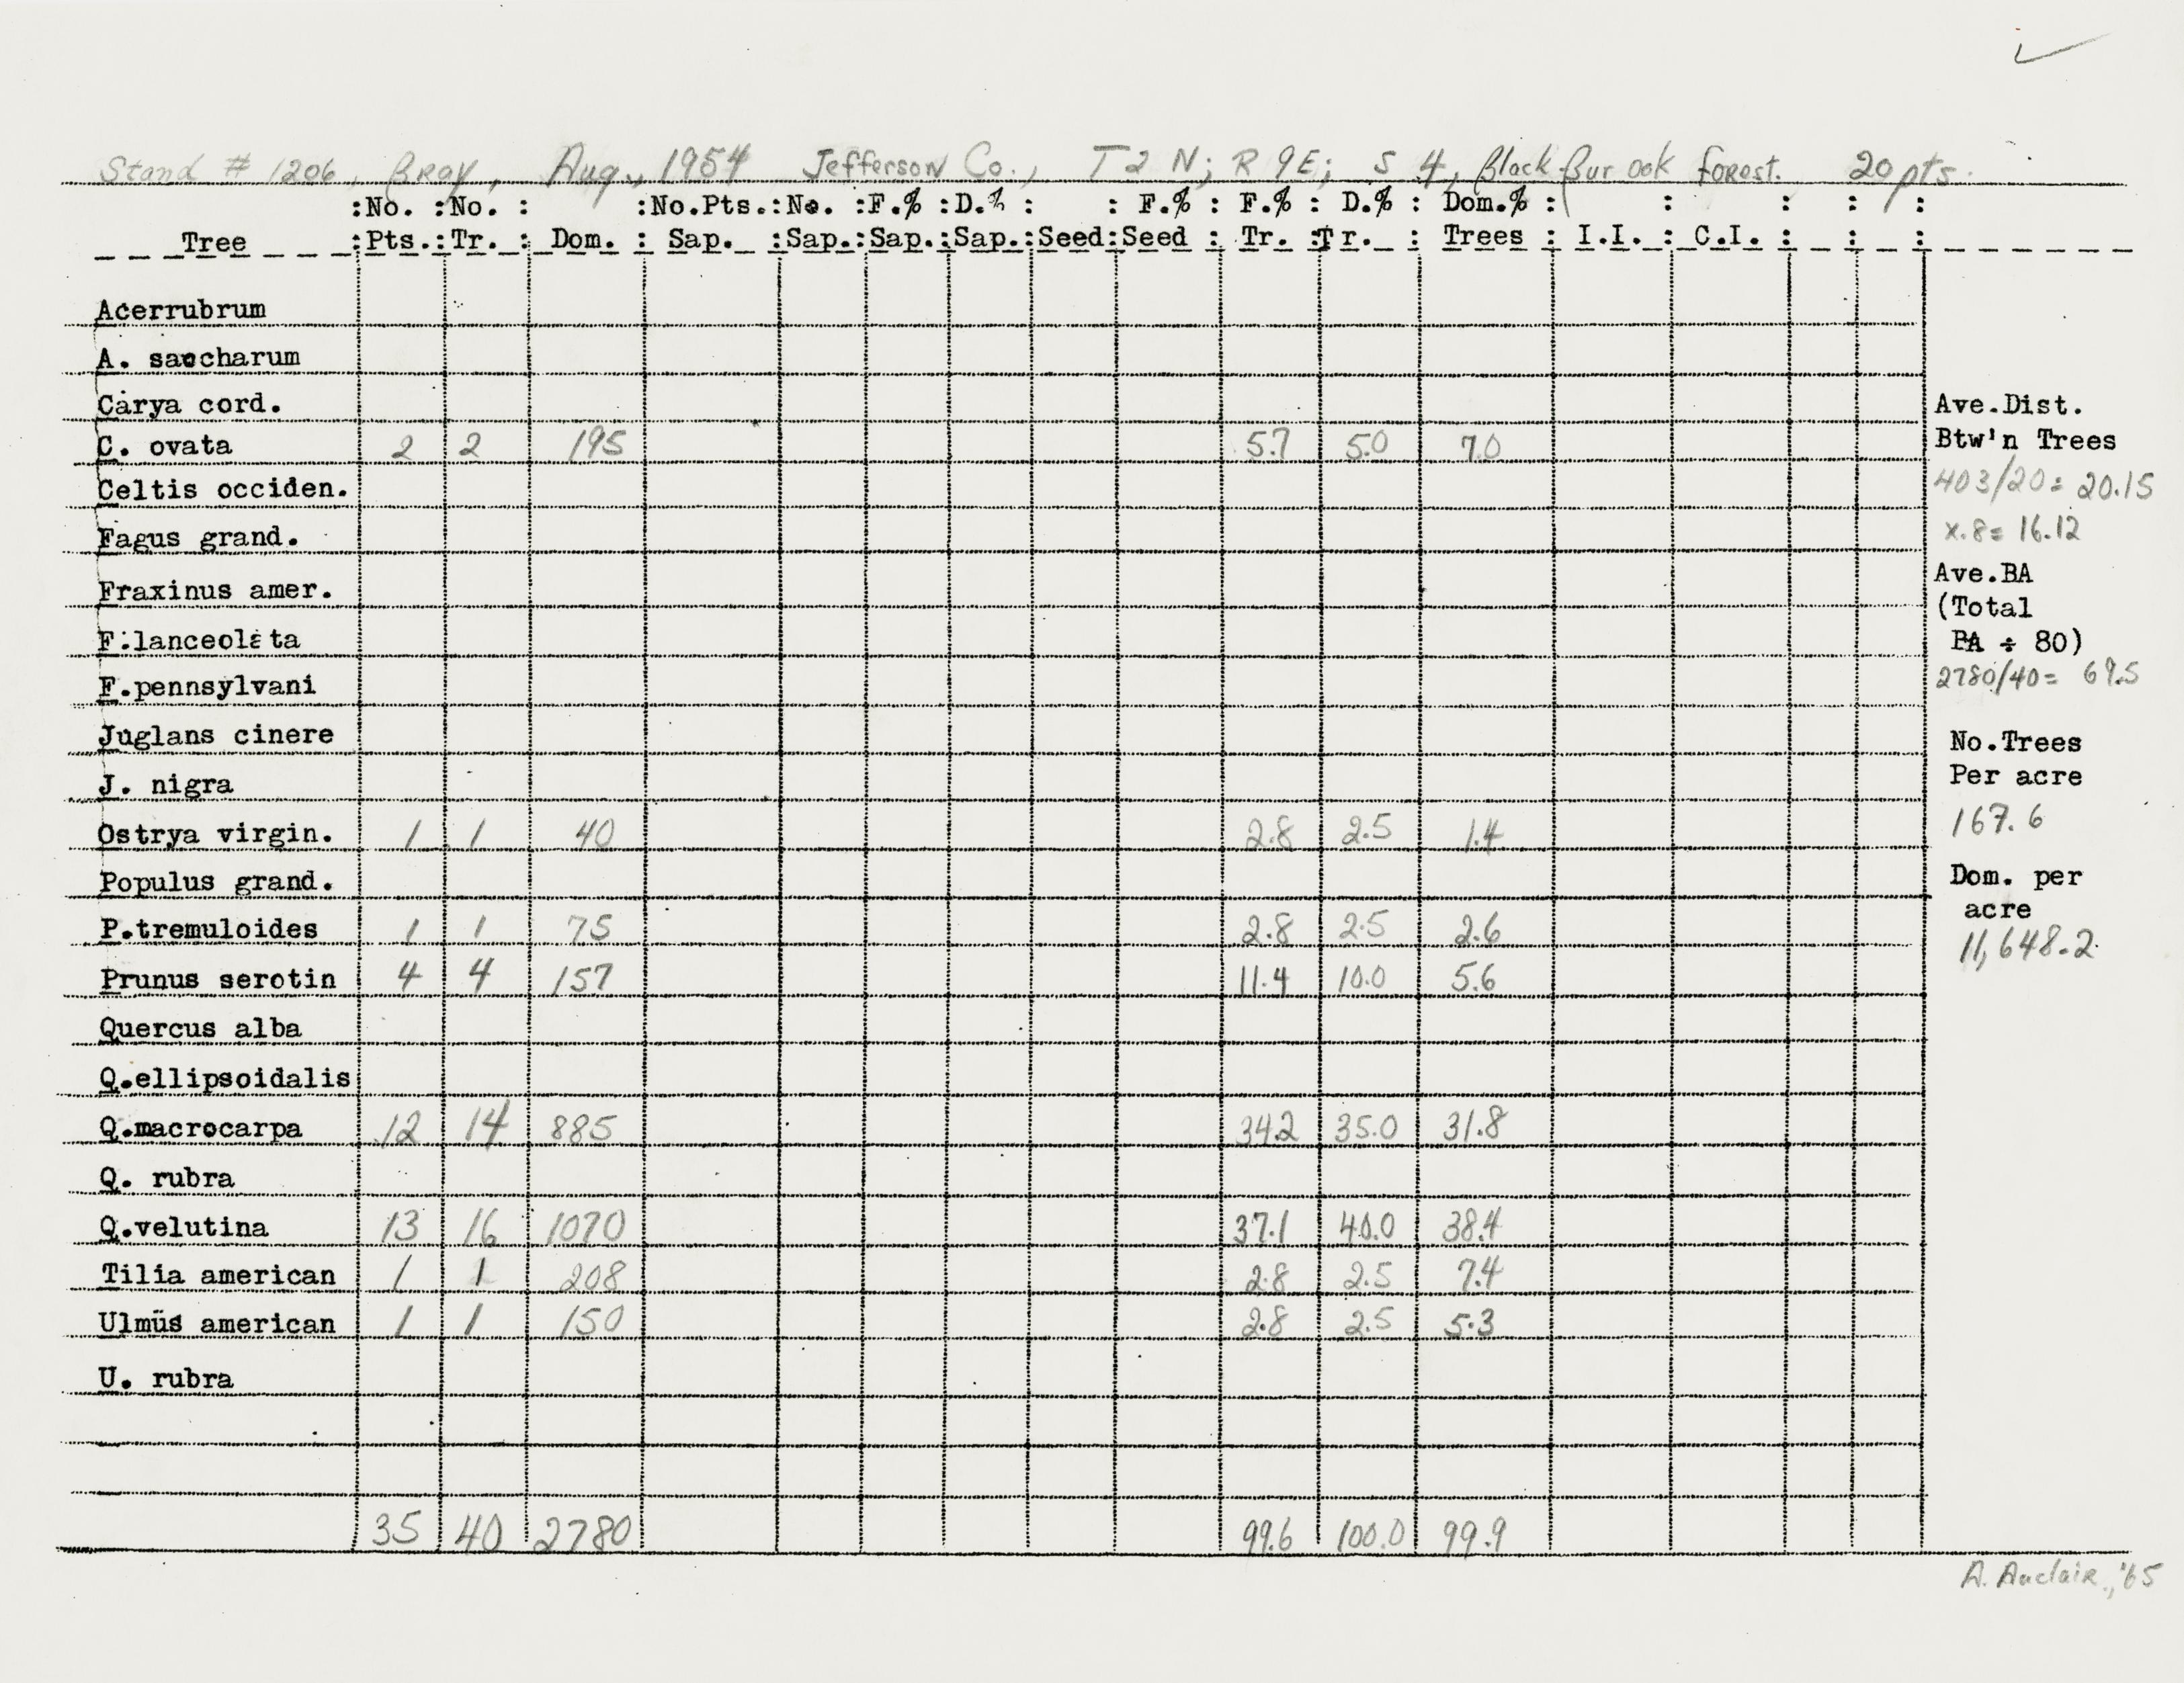 Stand # 1206, Bray, Aug., 1954 Jefferson Co., T 2 N; R 9E; S 4, Black-Bur Oak Forest. 20 pts.
:No. :No. : :No.Pts.:No. :F.% :D.% : : F.% : F.% : D.% : Dom.% : : : : :
Tree :Pts.:Tr. : Dom. : Sap. :Sap.:Sap.:Sap.:Seed:Seed : Tr. :Tr. : Trees : I.I. : C.I. : : :
Acerrubrum
A. saccharum
Carya cord.
C. ovata 2 2 195 5.7 5.0 7.0
Celtis occiden.
Fagus grand.
Fraxinus amer.
F.lanceolata
F.pennsylvani
Juglans cinere
J. nigra
Ostrya virgin. 1 1 40 2.8 2.5 1.4
Populus grand.
P.tremuloides 1 1 75 2.8 2.5 2.6
Prunus serotin 4 4 157 11.4 10.0 5.6
Quercus alba
Q.ellipsoidalis
Q.macrocarpa 12 14 885 34.2 35.0 31.8
Q. rubra
Q.velutina 13 16 1070 37.1 40.0 38.4
Tilia american 1 1 208 2.8 2.5 7.4
Ulmus american 1 1 150 2.8 2.5 5.3
U. rubra
35 40 2780 99.6 100.0 99.9
Ave.Dist.
Btw'n Trees
403/20= 20.15
x.8= 16.12
Ave.BA
(Total
BA ÷ 80)
2780/40= 69.5
No.Trees
Per acre
167.6
Dom. per
acre
11,648.2
A. Auclair, '65